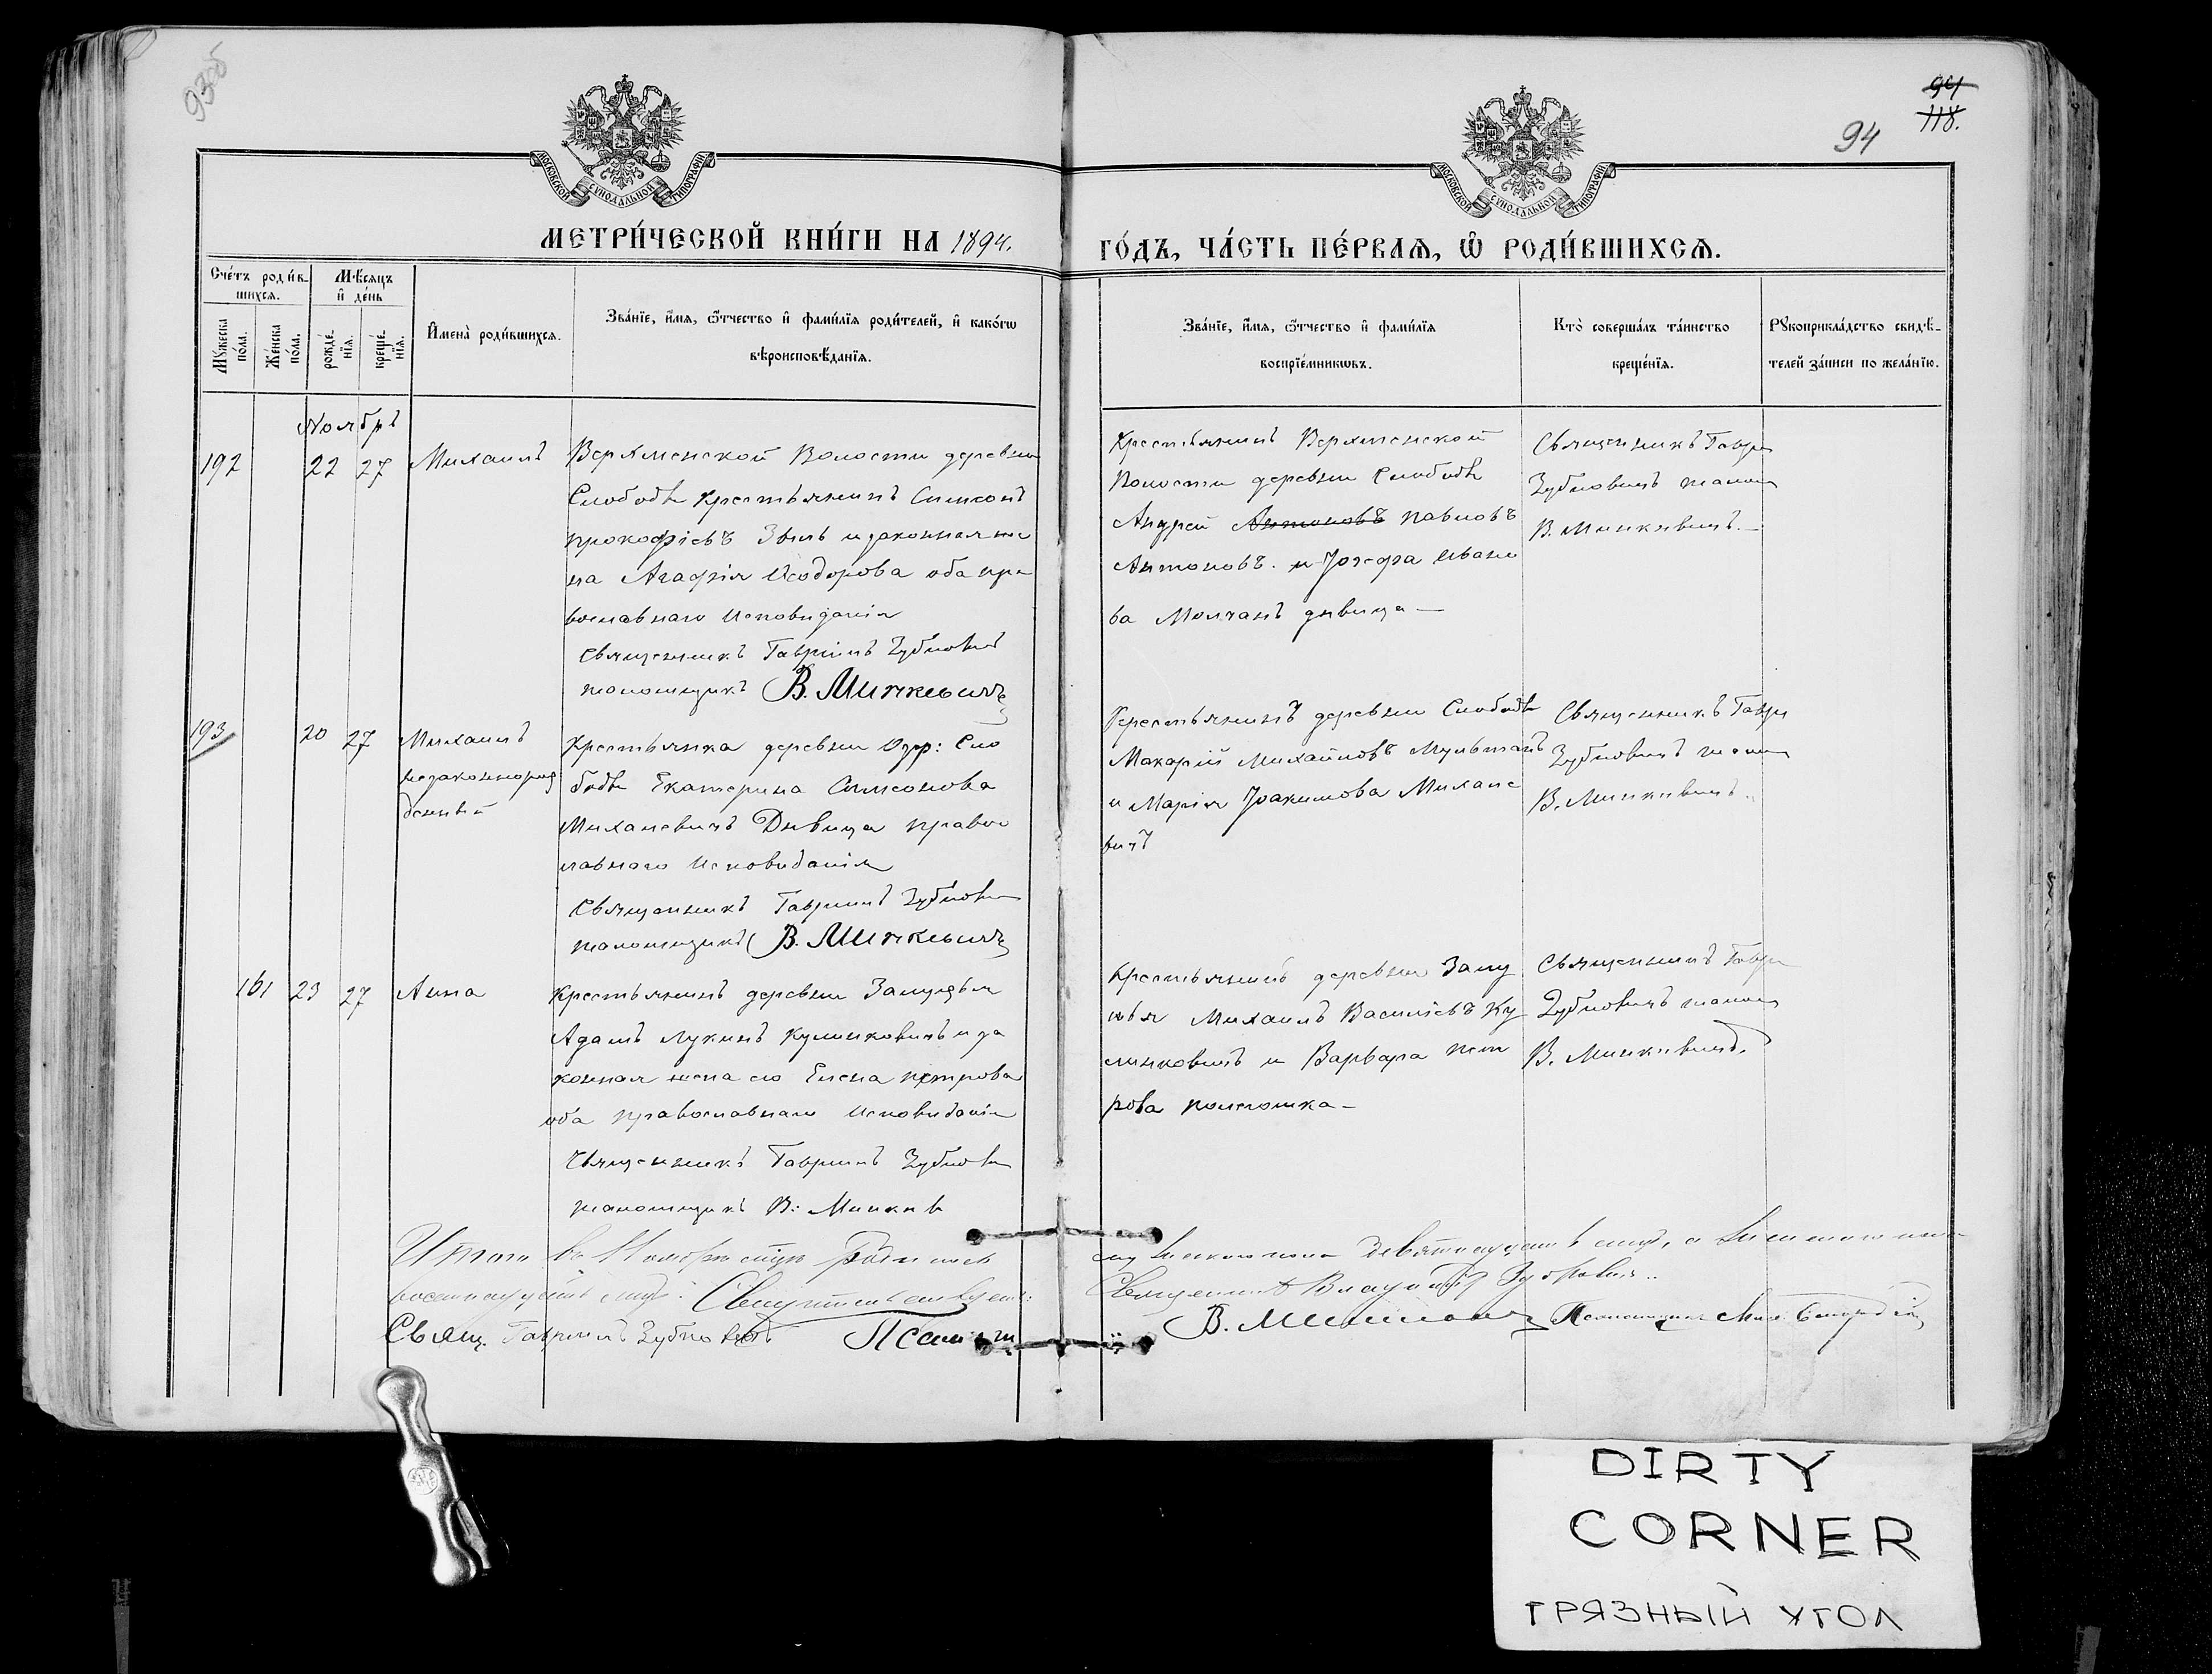 93об
94
118.
94
МОСКОВСКОЙ СУНОДАЛЬНОЙ ТИПОГРАФІИ
МОСКОВСКОЙ СУНОДАЛЬНОЙ ТИПОГРАФІИ
МЕТРИ́ЧЕСКОЙ КНИ́ГИ НА 1894.
ГО́ДЪ, ЧА́СТЬ ПЕ́РВАѦ, Ѽ РОДИ́ВШИХСѦ.
Сче́тъ роди́в-
шихсѧ.
Мѣ́сѧцъ
и҆ де́нь
Мꙋ́жеска по́ла.
Же́нска по́ла.
рожде́-нїѧ.
креще́-нїѧ.
И҆мена̀ роди́вшихсѧ.
Зва́нїе, и҆́мѧ, ѻ҆́тчество и҆ фами́лїѧ роди́телей, и҆ како́гѡ
вѣроисповѣ́данїѧ.
Зва́нїе, и҆́мѧ, ѻ҆́тчество и҆ фами́лїѧ
воспрїе́мникѡвъ.
Кто̀ соверша́лъ та́инство
креще́нїѧ.
Рꙋкоприкла́дство свидѣ́-
телей за́писи по жела́нїю.
Ноябрь
192 22 27 Михаилъ
Верхменской Волости деревни
Слободы Крестьянинъ Симеонъ
Прокофіевъ и законная же
на Агафія Ѳеодорова оба пра
вославнаго Исповиданія
Священникъ Гавріилъ Зубкович
псаломщикъ В. Мицкевичъ
Крестьянинъ Верхменской
Волости деревни Слободы
Андрей Антоновъ Павловъ
Антоновъ. и Іозефа Ивано
ва Молчанъ дѣвица —
Священникъ Гаври
Зубковичъ псалом
В. Мицкевичъ. —
193 20 27 Михаилъ
незаконнорож
денный
Крестьянка деревни Озер: Сло
боды Екатерина Симеонова
Миханевичъ Дѣвица Право
славнаго Исповиданія
Священникъ Гавріилъ Зубкови
псаломщикъ В. Мицкевичъ
Крестьянинъ деревни Слободы
Макарій Михайловъ Мультанъ
и Марія Іоакимова Михане
вичъ
Священникъ Гаври
Зубковичъ псалом
В. Мицкевичъ.
161 23 27 Анна
Крестьянинъ деревни
Адамъ Лукинъ Кулинковичъ и за
конная жена его Елена Петрова
оба Православнаго Исповиданія
Священникъ Гавріилъ Зубкови
псаломщикъ В: Мицкев
Крестьянинъ деревни
Михаилъ Василіевъ Ку
линковичъ и Варвара Пет
рова
Священникъ Гаври
Зубковичъ псалом
В. Мицкевичъ.
Итого въ Ноябрѣ родилось
мужескаго пола девятнадцать а женскаго пола
восемнадцать
Священникъ Зубковичъ
Свящ. Гавріилъ Зубковичъ Псаломщ
В. Мицкевичъ Псаломщикъ
DIRTY
CORNER
ГРЯЗНЫЙ УГОЛ